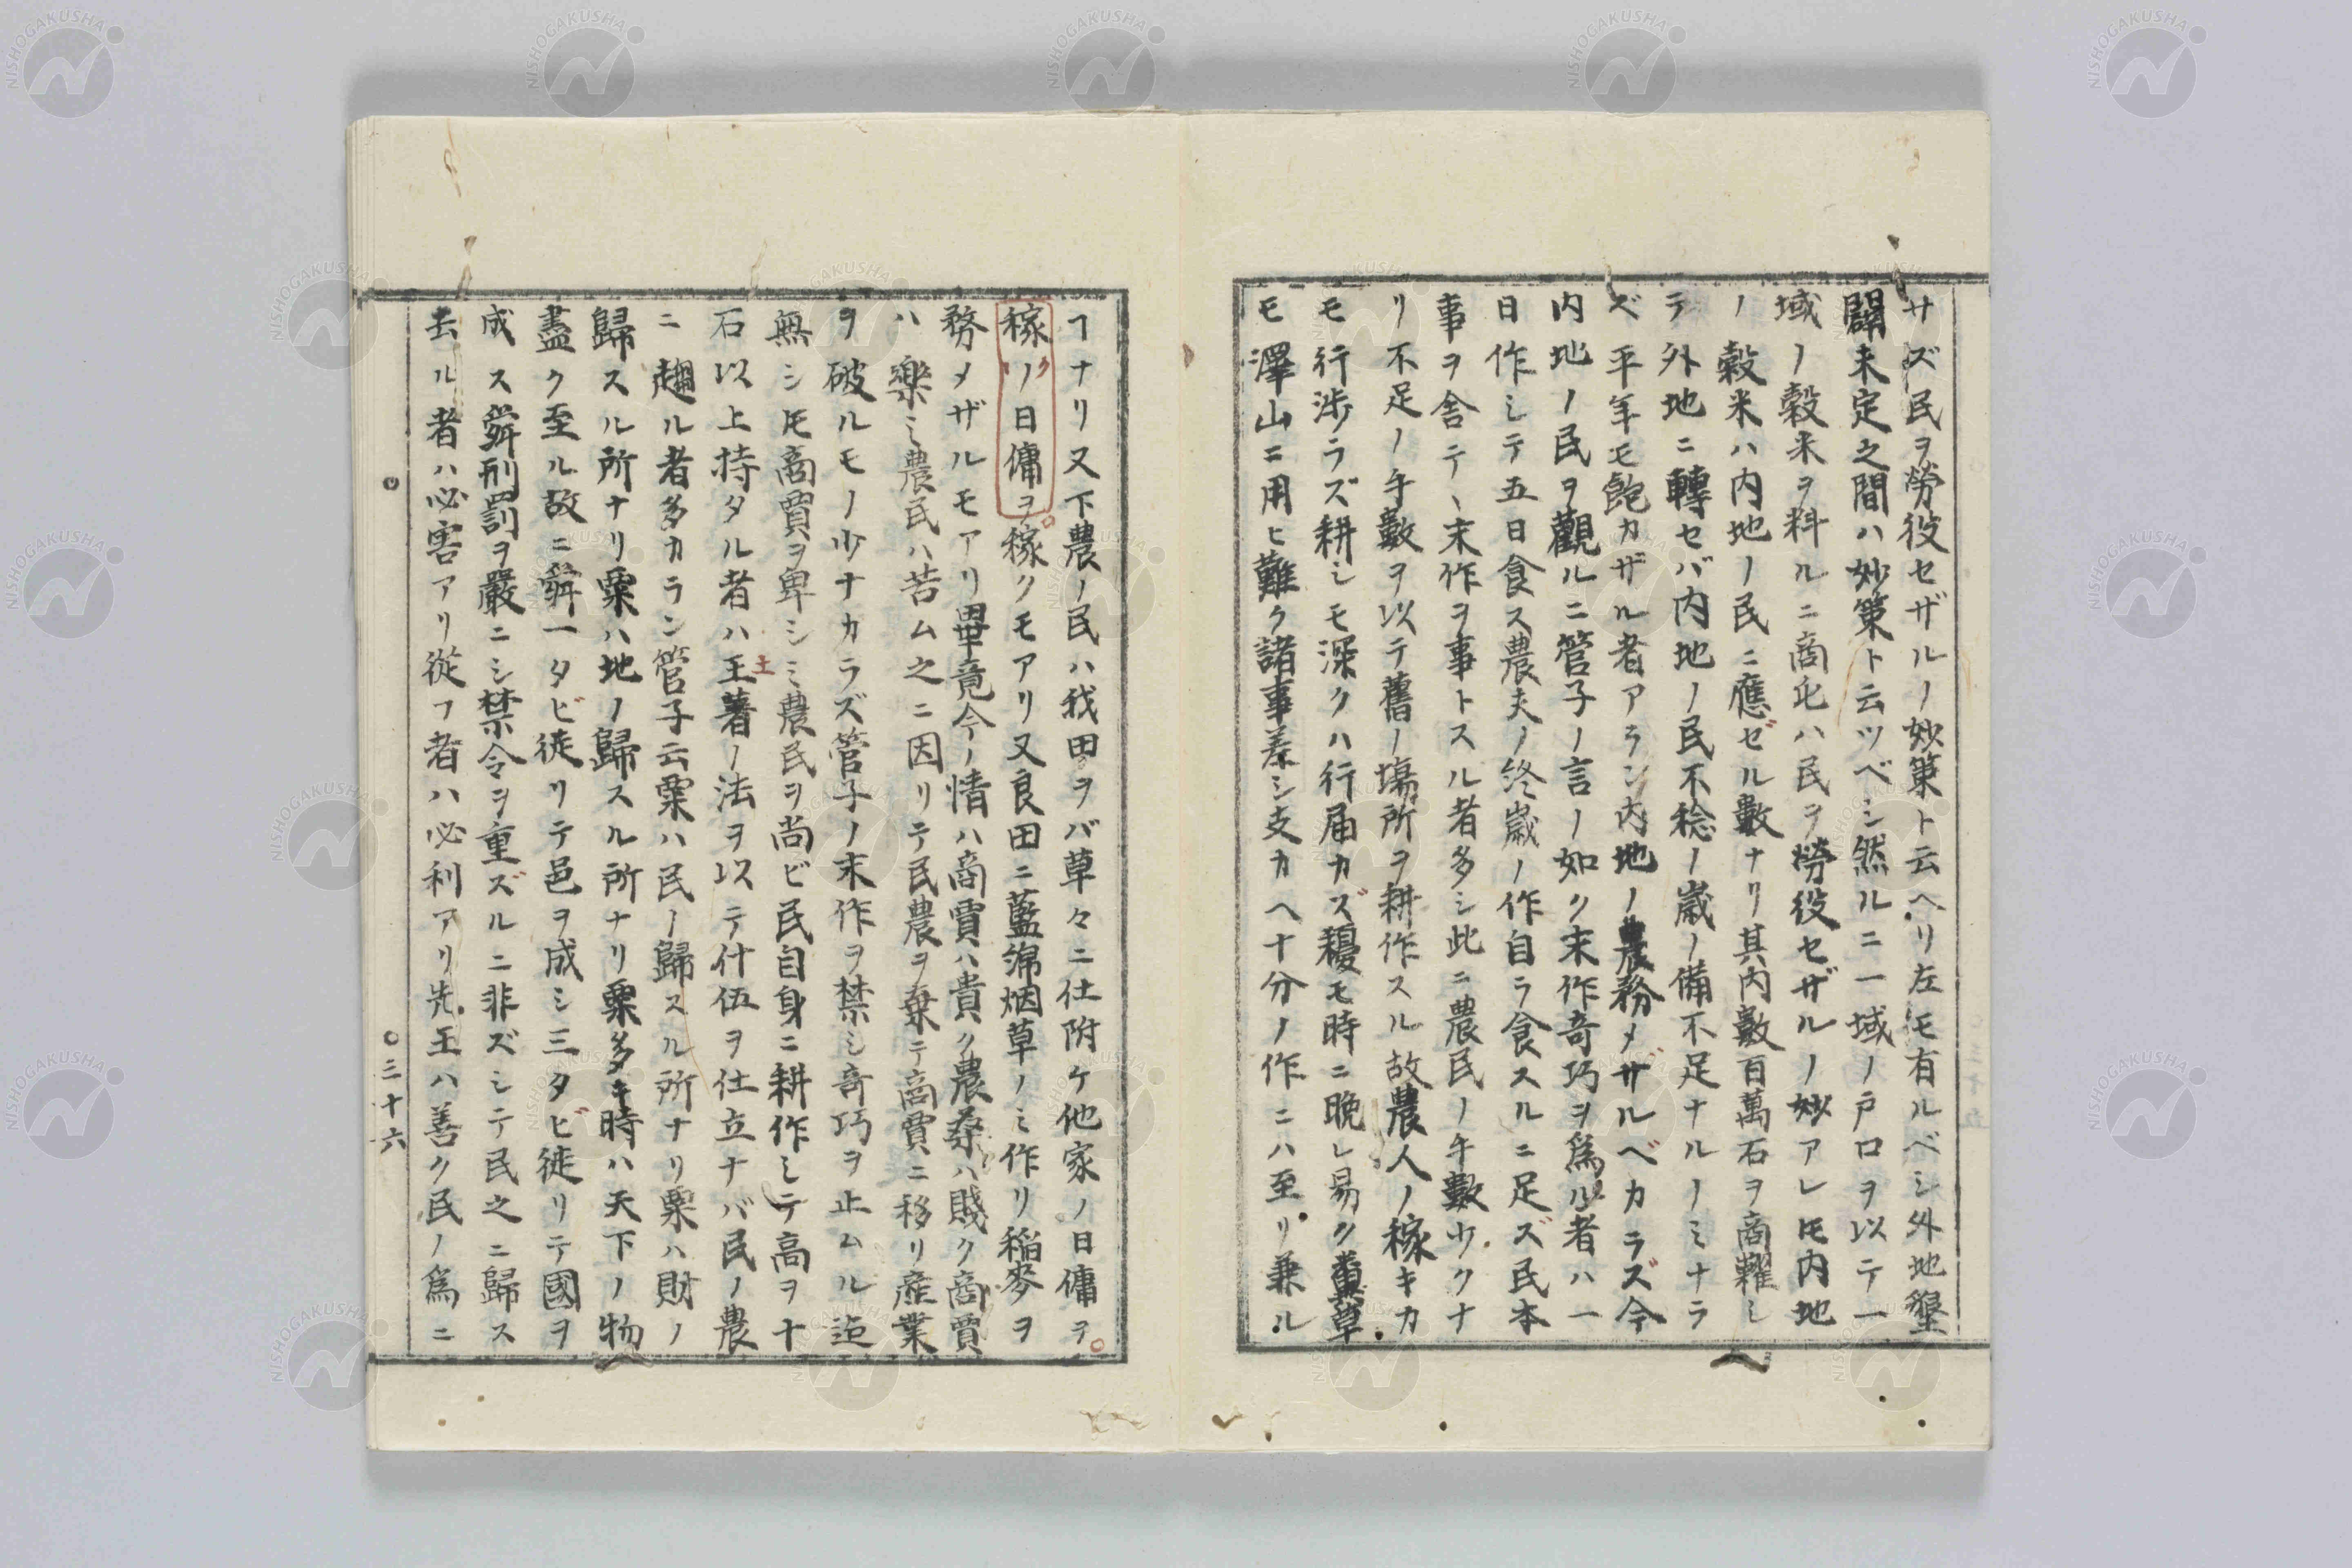 サズ民ヲ勞役セザルノ妙策ト云ヘリ左モ有ルベシ外地墾
闢未定之間ハ妙策ト云ツベシ然ルニ一域ノ戸口ヲ以テ一
域ノ穀米ヲ料ルニ商北ハ民ヲ勞役セザルノ妙アレ𪜈内地
ノ穀米ハ内地ノ民ニ應ゼル數ナリ其内數百萬石ヲ商糶シ
テ外地ニ轉セバ内地ノ民不稔ノ歳ノ備不足ナルノミナラ
ズ平年モ飽カザル者アラン内地ノ農務メザルベカラズ今
内地ノ民ヲ觀ルニ管子ノ言ノ如ク末作奇巧ヲ爲ル者ハ一
日作シテ五日食ス農夫ノ終歳ノ作自ラ食スルニ足ズ民本
事ヲ舎テヽ末作ヲ事トスル者多シ此ニ農民ノ手數少クナ
リ不足ノ手數ヲ以テ舊ノ場所ヲ耕作スル故農人ノ稼キカ
モ行渉ラズ耕シモ深クハ行届カズ耰モ時ニ晩レ易ク糞草
モ澤山ニ用ヒ難ク諸事差シ支カヘ十分ノ作ニハ至リ兼ル
ヿナリ又下農ノ民ハ我田ヲバ草々ニ仕附ケ他家ノ日傭ヲ
稼ク日傭ヲ稼クモアリ又良田ニ藍綿烟草ノミ作リ稲麥ヲ
務メザルモアリ畢竟今ノ情ハ商賈ハ貴ク農桑ハ賤ク商賈
ハ樂ミ農民ハ苦ム之ニ因リテ民農ヲ棄テ商賈ニ移リ産業
ヲ破ルモノ少ナカラズ管子ノ末作ヲ禁シ奇巧ヲ止ムル迄
無シ𪜈商賈ヲ卑シミ農民ヲ尚ビ民自身ニ耕作シテ高ヲ十
石以上持タル者ハ王土著ノ法ヲ以テ什伍ヲ仕立ナバ民ノ農
ニ趨ル者多カラン管子云粟ハ民ノ歸スル所ナリ粟ハ財ノ
歸スル所ナリ粟ハ地ノ歸スル所ナリ粟多キ時ハ天下ノ物
盡ク至ル故ニ舜一タビ徙リテ邑ヲ成シ三タビ徙リテ國ヲ
成ス舜刑罰ヲ嚴ニシ禁令ヲ重ズルニ非ズシテ民之ニ歸ス
去ル者ハ必害アリ從フ者ハ必利アリ先王ハ善ク民ノ爲ニ
三十六
NISHOGAKUSHA